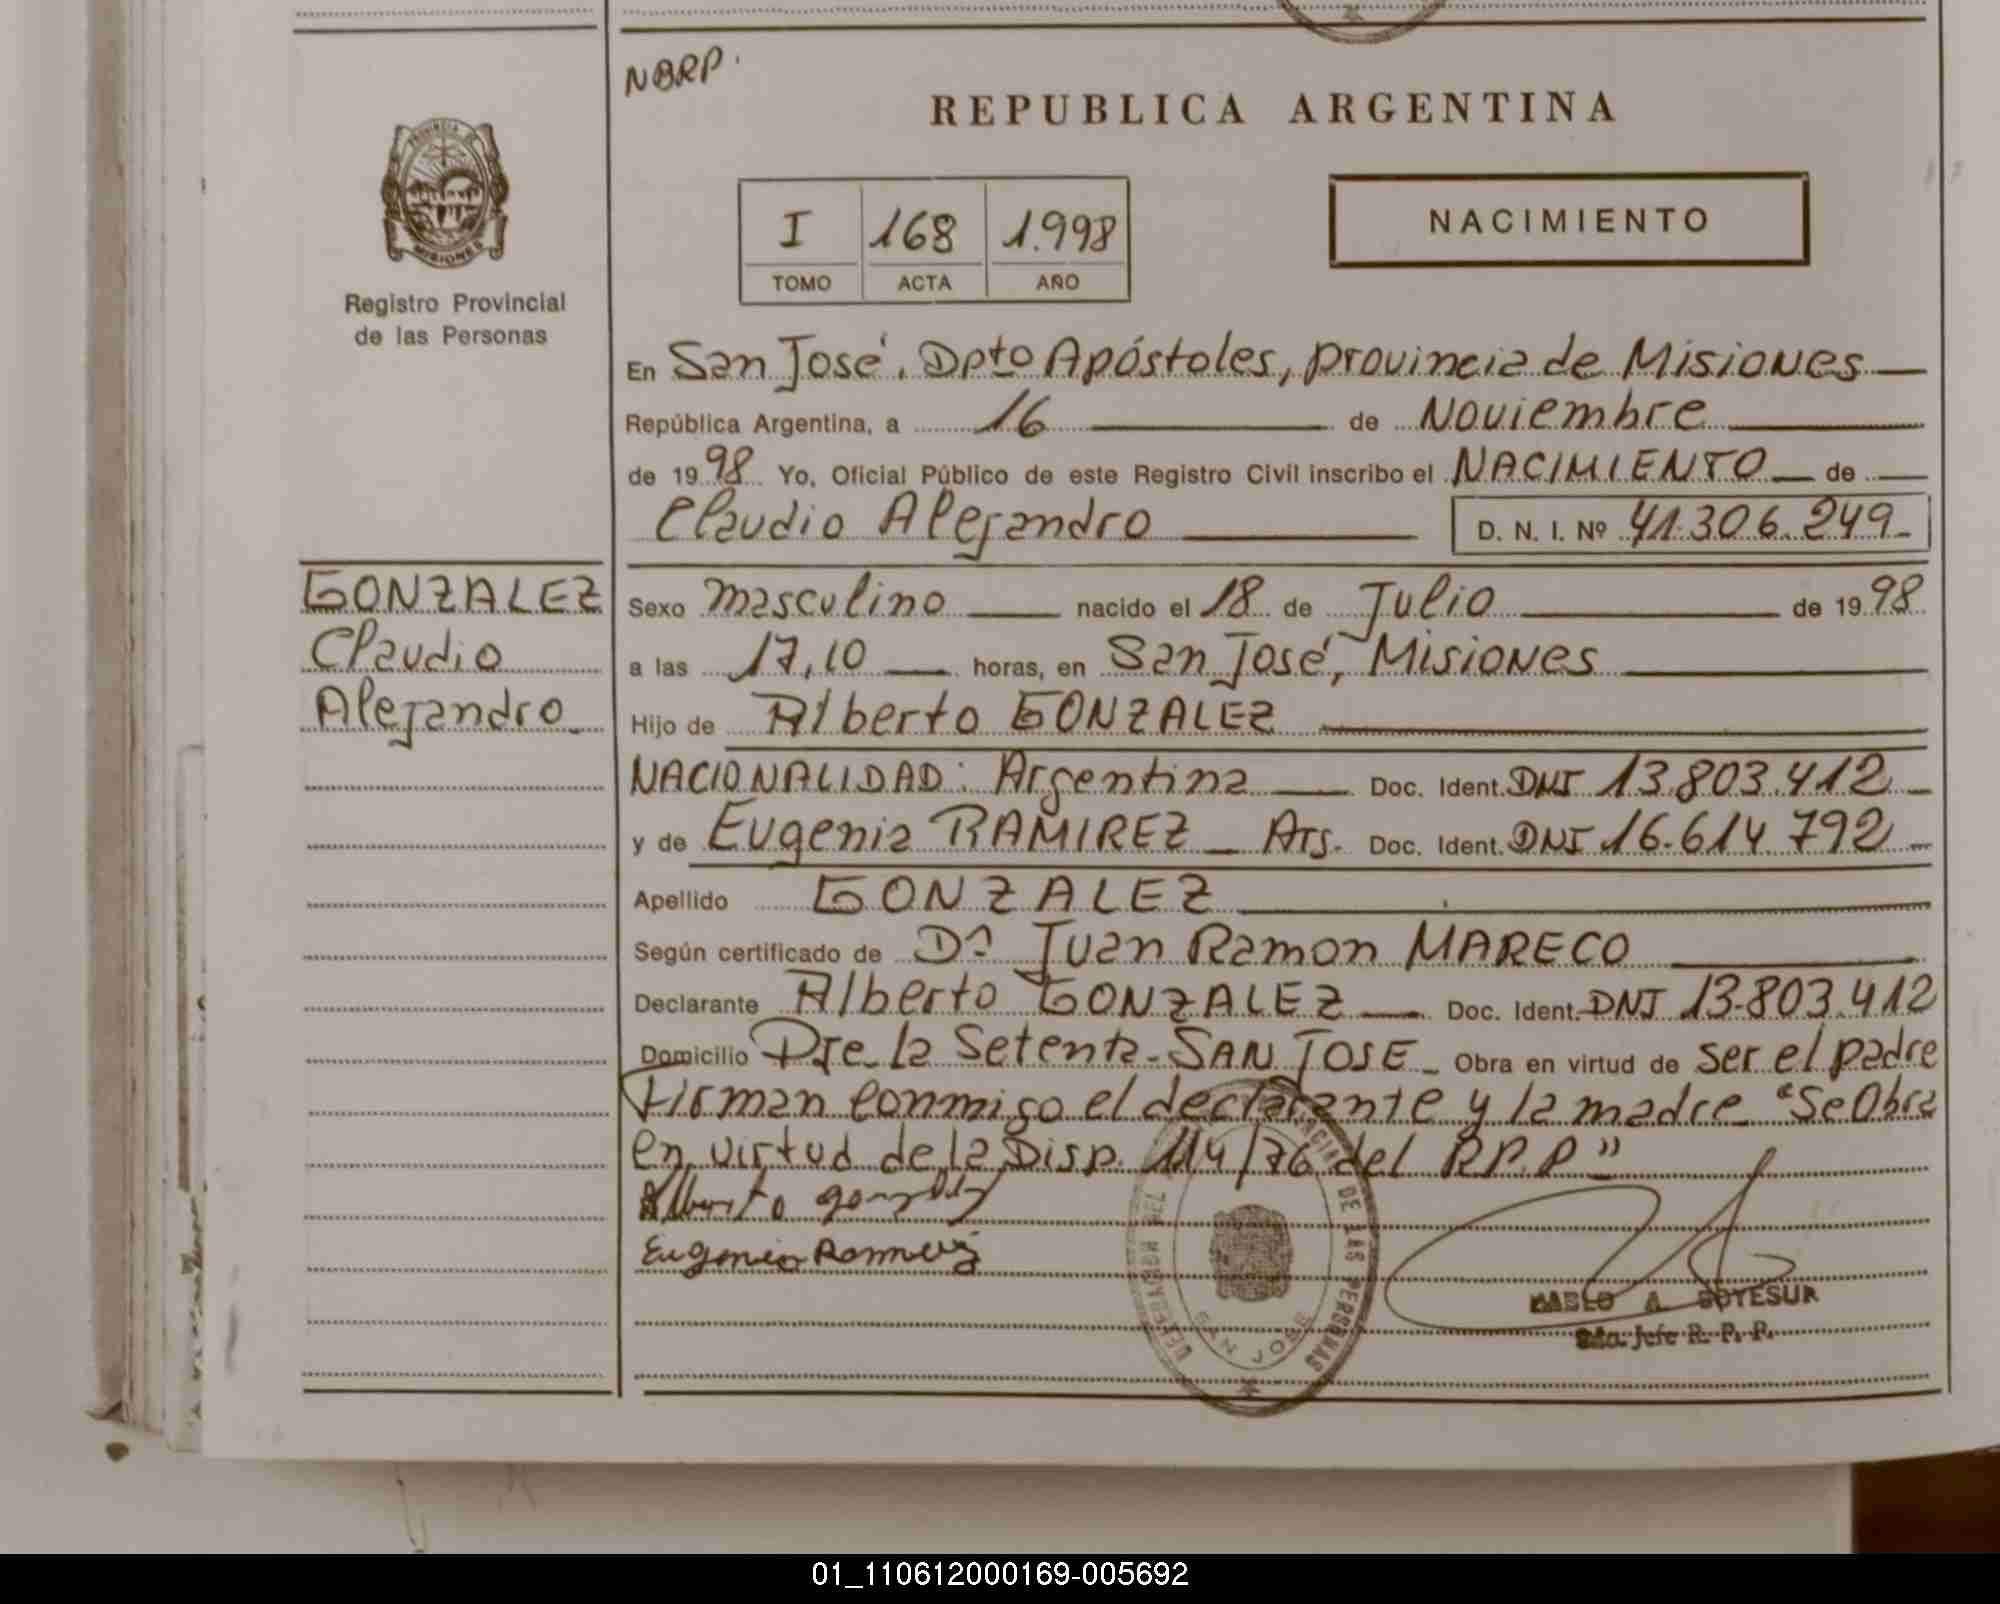 NBRP.
REPUBLICA ARGENTINA
PROVINCIA DE
MISIONES
Registro Provincial
de las Personas
I 168 1.998
TOMO ACTA AÑO
NACIMIENTO
En San José. Dpto Apóstoles, provincia de Misiones
República Argentina, a 16 de Noviembre
de 1998 Yo, Oficial Público de este Registro Civil inscribo el NACIMIENTO de
Claudio Alejandro D. N. I. Nº 41.306.249-
GONZALEZ
Claudio
Alejandro
Sexo masculino nacido el 18 de Julio de 1998
a las 17,10 horas, en San José, Misiones
Hijo de Alberto GONZALEZ
NACIONALIDAD: Argentina Doc. Ident. DNI 13.803.412
y de Eugenia RAMIREZ Arg. Doc. Ident. DNI 16.614.792
Apellido GONZALEZ
Según certificado de Juan Ramon MARECO
Declarante Alberto GONZALEZ Doc. Ident. DNI 13.803.412
Domicilio la Setenta-SAN JOSE Obra en virtud de ser el padre
Firman conmigo el declarante y la madre "Se Obra
en virtud de la Disp. 114/76 del R.P.P"
Alberto gonzalez
Eugenia Ramirez
DE LAS PERSONAS
SAN JOSE
PABLO A. BOYESUK
Jefe R. P. P.
01_110612000169-005692